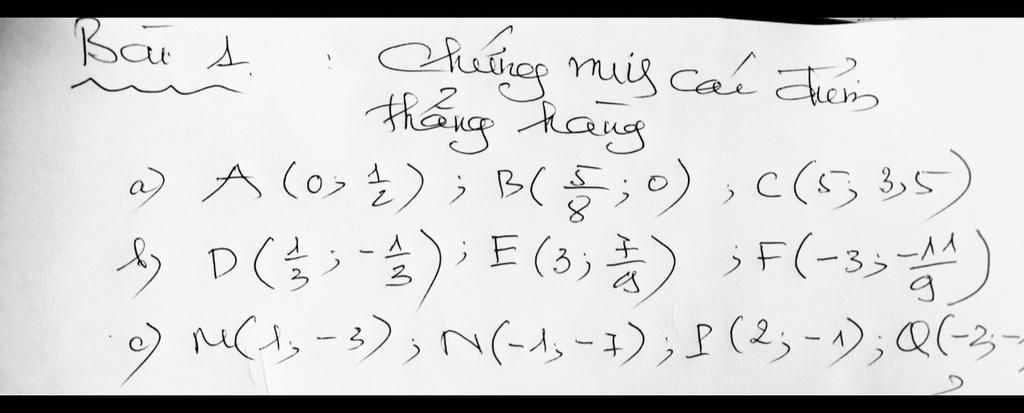 Bài 1 : Chứng minh các điểm
thẳng hàng
a) A (0; 1/2) ; B( 5/8 ; 0) , C(5; 3,5)
b) D( 1/3 ; -1/3 ) ; E (3; 7/9) ; F(-3; -11/9)
c) M(1; -3) ; N(-1; -7) ; P (2; -1) ; Q(-2; -